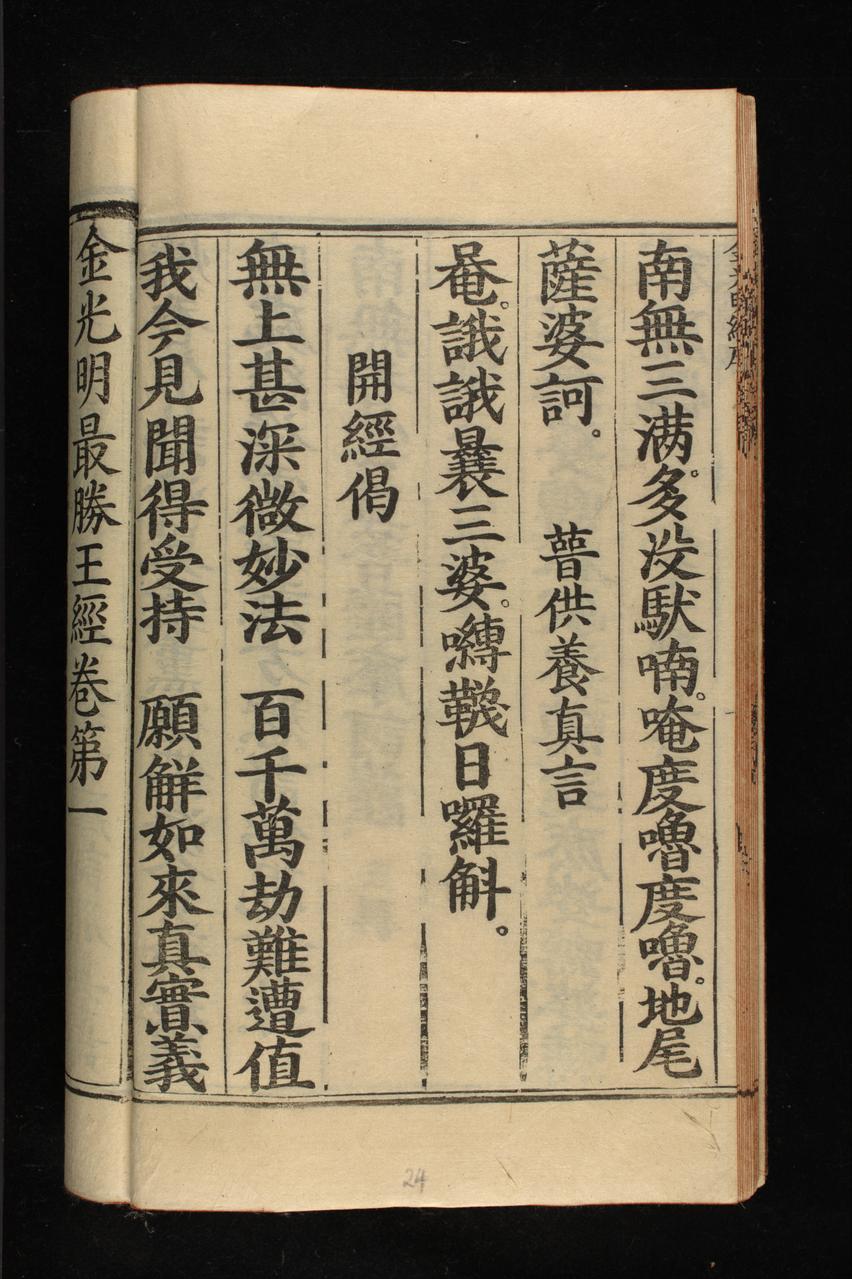 南無三滿多。没馱喃。唵度嚕度嚕。地尾
薩婆訶。 普供養真言
唵。誐誐曩三婆。嚩韈日囉斛。
開經偈
無上甚深微妙法 百千萬劫難遭值
我今見聞得受持 願解如來真實義
金光明最勝王經卷第一
24